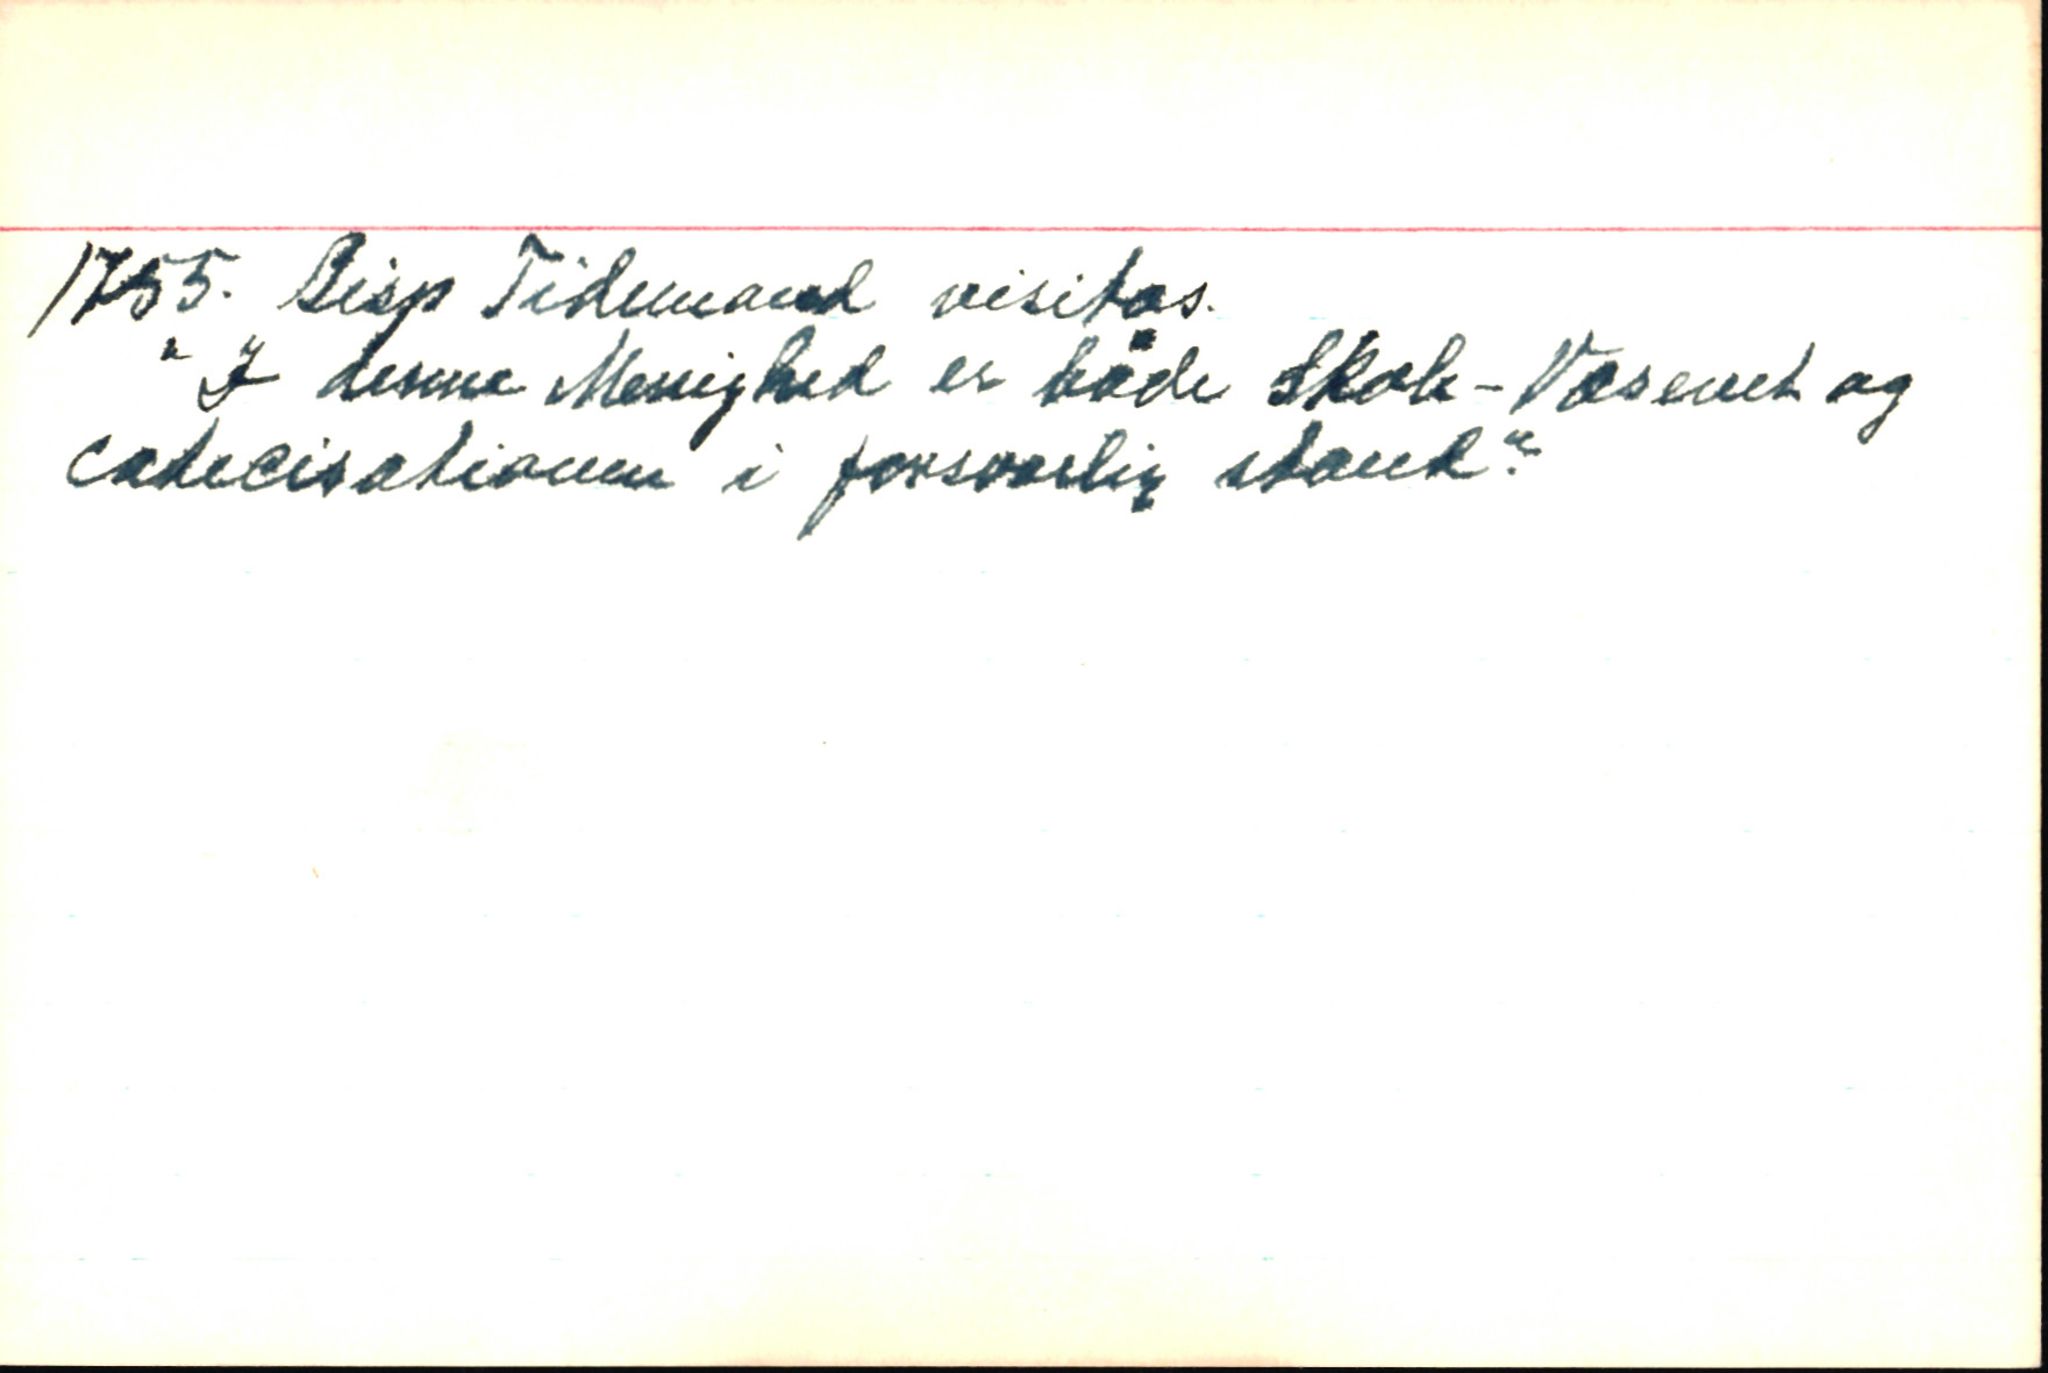 1755. Bisp Tidemand visitas.
"I denne Menighed er både Skole-Væsenet og
catecisationen i forsvarlig stand".